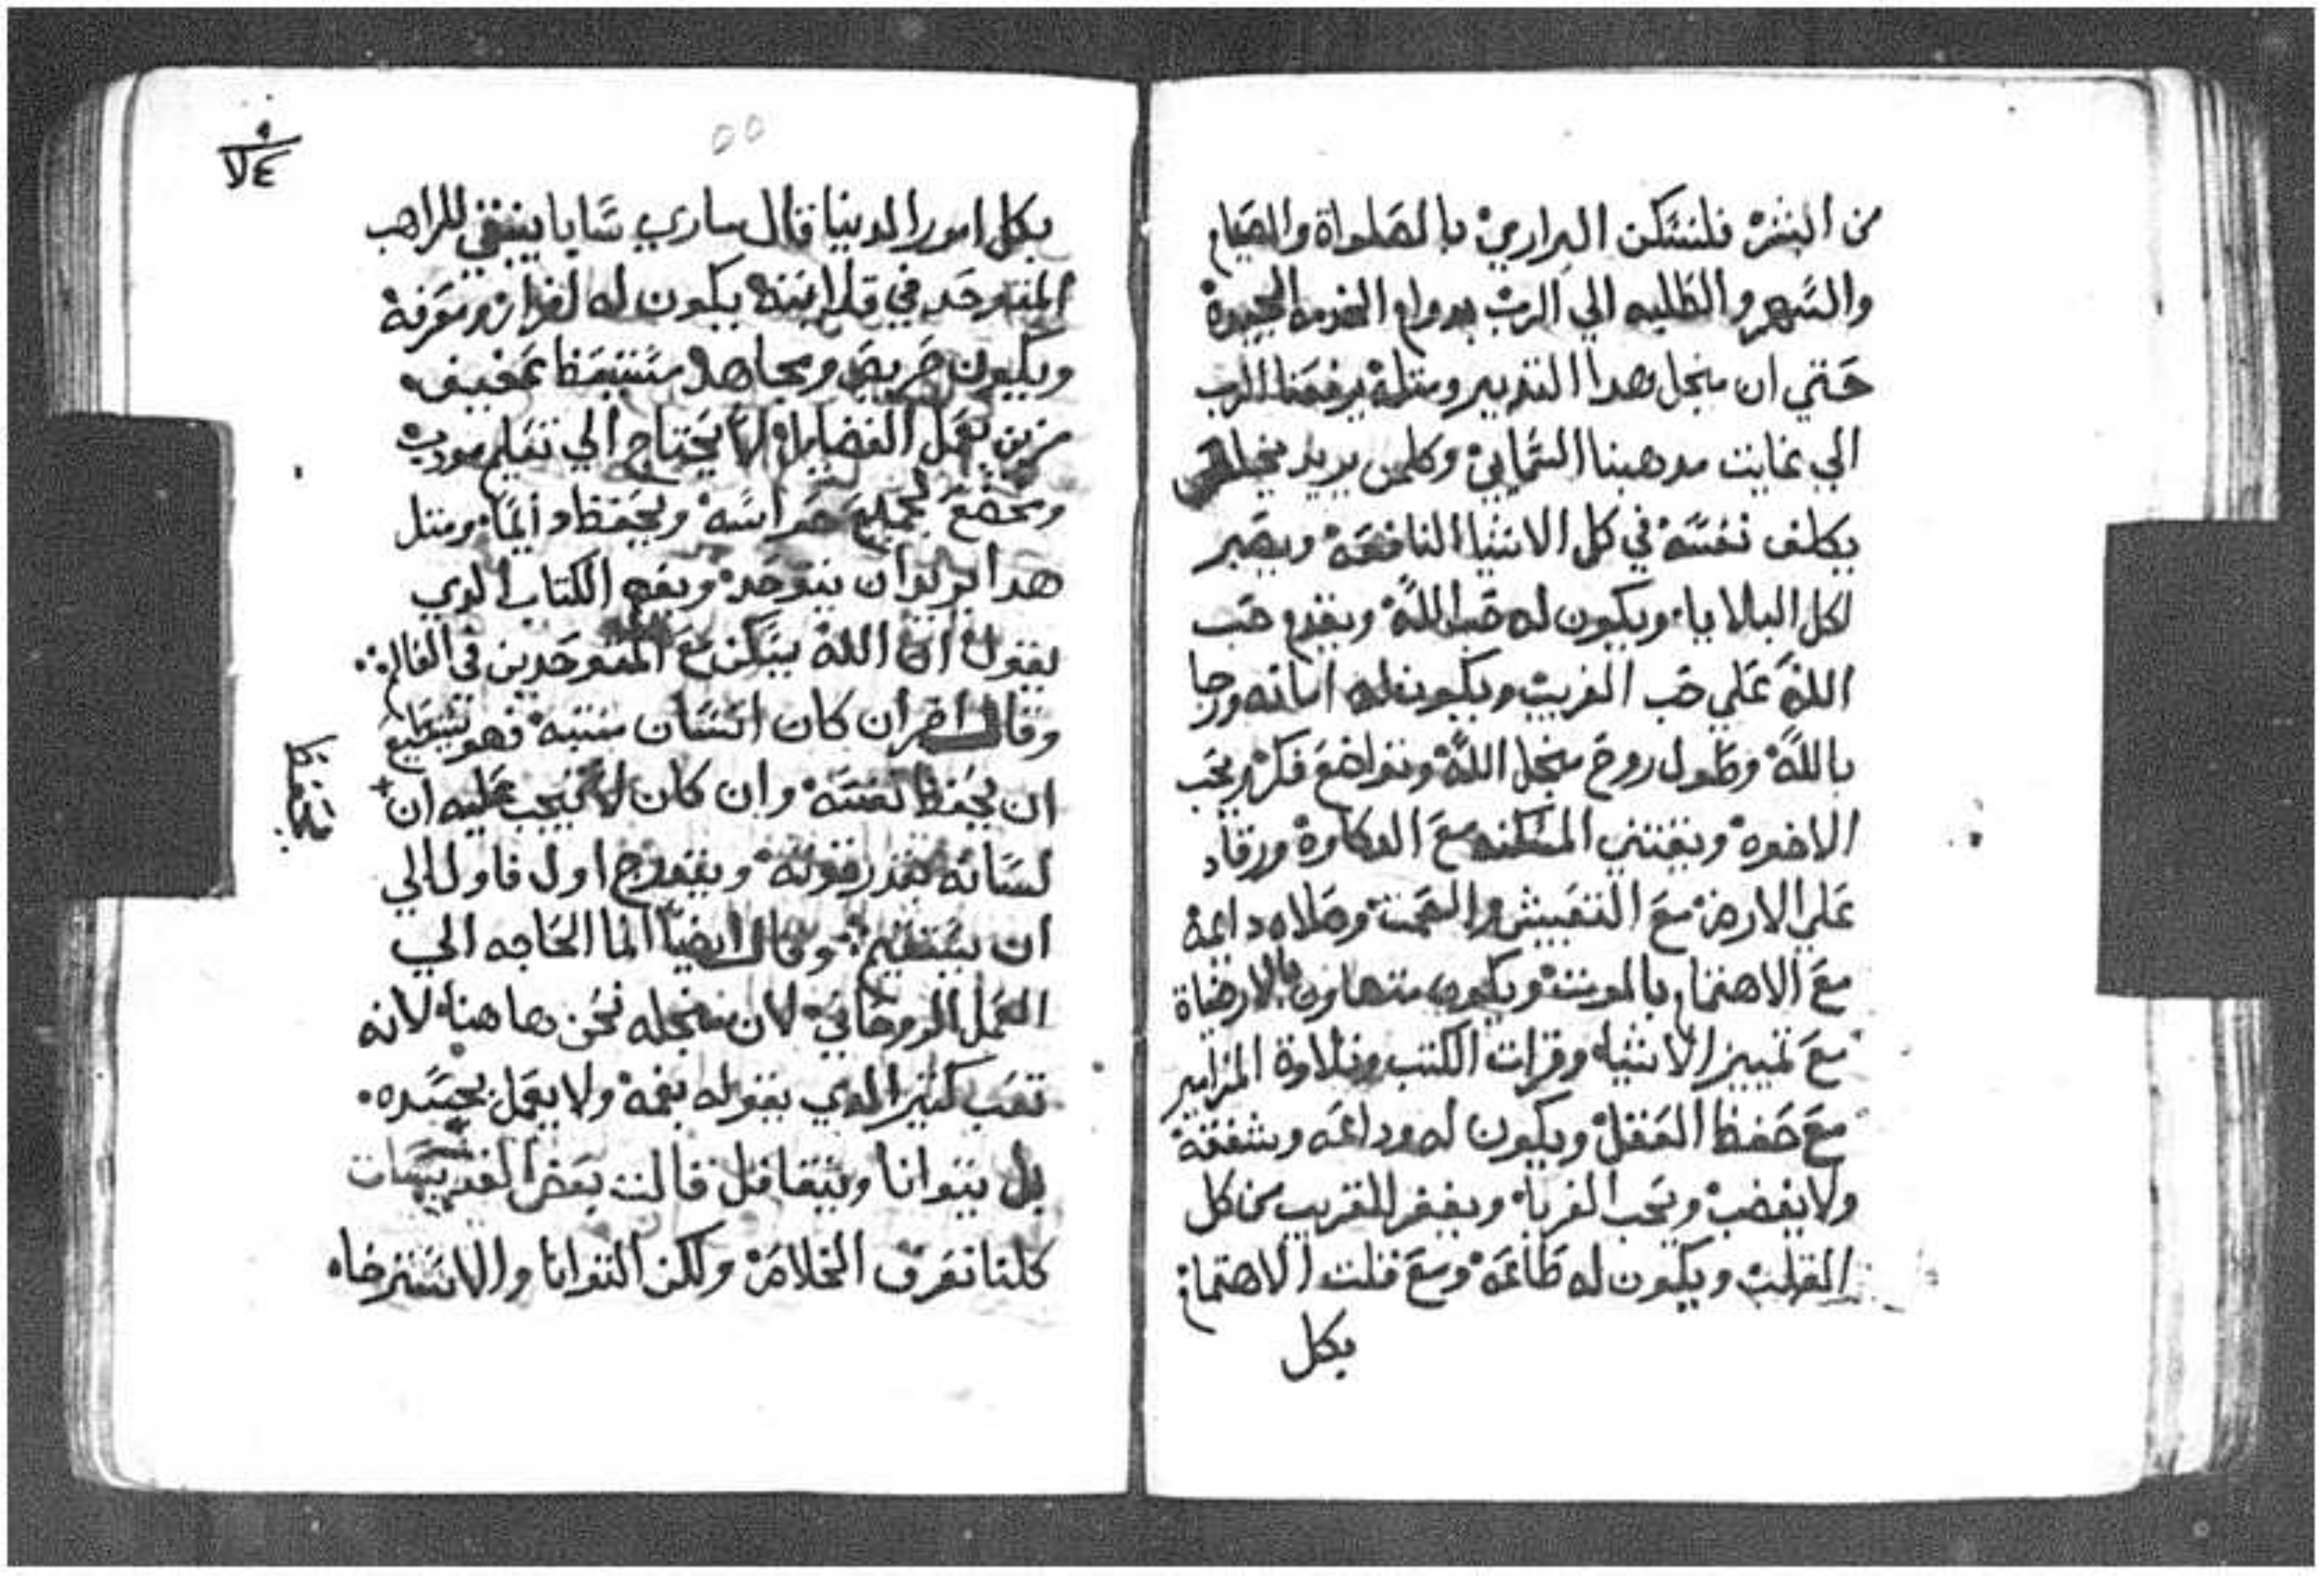 من البشر فلنسكن البراري بالصلواة والصيام
والسهر والطلبه الي الرب بدوام الخدمه الجيدة
حتي ان منجل هدا التدبير ومتله يرفعنا الرب
الي غايت مدهبنا السمايي وكلمن يريد
يكلف نفسه في كل الاشيا النافعه ويصبر
لكل البلايا ويكون له حب الله ويقدم حب
الله علي حب القريب ويكون له امانه ورجا
بالله وطول روح منجل الله وتواضع فكر ويحب
الاخوه ويقتني المسكنه مع الدكاوة ورقاد
علي الارض مع التقبيش والصمت وصلاه دايمه
مع الاهتمام بالموت ويكون متهاون بالارضاة
مع تمييز الاشيا وقرات الكتب وتلاوة المزامير
مع حفظ العقل ويكون له وداعه وشفقه
ولا يغضب ويحب الغربا ويغفر للقريب من كل
القلب ويكون له طاعه ومع قلت الاهتمام
بكل
٥٥
بكل امور الدنيا قال ساري سابا ينبغي للراهب
المتوحد في قلايته يكون له افراز ومعرفه
ويكون حريص ومجاهد مستيقظ عفيف
مزين بعمل الفضايل لا يحتاج الي تعليم مودب
ويخضع لجميع حواسه ويحفظ دايما ومتل
هدا يريد ان يتوحد ويفهم الكتاب الدي
يقول ان الله يسكن مع المتوحدين في العالم
وقال اخر ان كان انسان ستبه فهو يستطيع
ان يحفظ نفسه وان كان لا يجب عليه ان
لسانه بقدر قوته ويتدرج اول فاول الي
ان يستقيم وقال ايضا انما الحاجه الي
العمل الروحاني لان منجله نحن هاهنا لانه
تعب كتير الدي يقوله بفمه ولا يعمل بجسده
بل يتوانا ويتغافل قالت بعض القديسات
كلنا نعرف الخلاص ولكن التوانا والاسترخاه